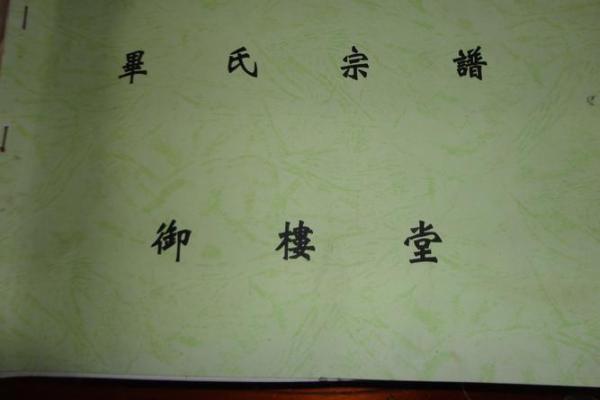 畢氏宗譜
御樓堂